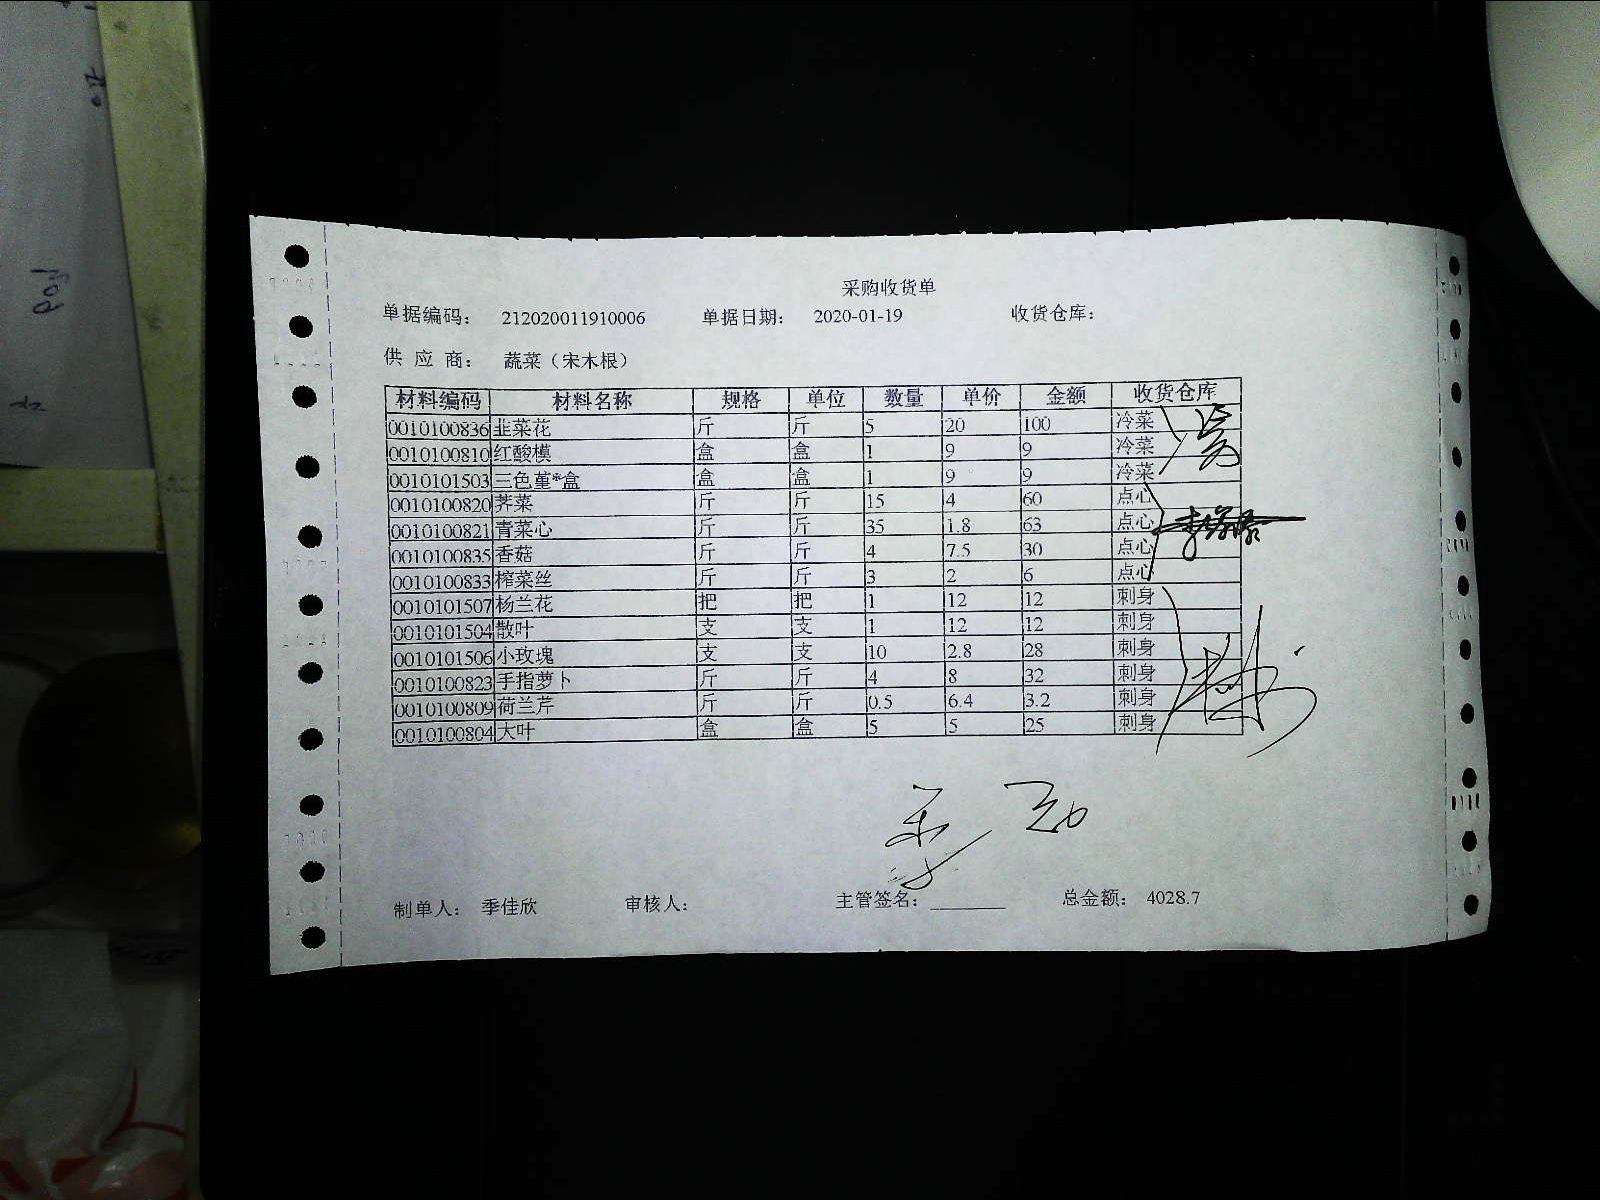 采购收货单
单据编码: 212020011910006 单据日期: 2020-01-19 收货仓库:
供 应 商: 蔬菜（宋木根）
材料编码 材料名称 规格 单位 数量 单价 金额 收货仓库
0010100836 韭菜花 斤 斤 5 20 100 冷菜
0010100810 红酸模 盒 盒 1 9 9 冷菜
0010101503 三色堇*盒 盒 盒 1 9 9 冷菜
0010100820 荠菜 斤 斤 15 4 60 点心
0010100821 青菜心 斤 斤 35 1.8 63 点心
0010100835 香菇 斤 斤 4 7.5 30 点心
0010100833 榨菜丝 斤 斤 3 2 6 点心
0010101507 杨兰花 把 把 1 12 12 刺身
0010101504 散叶 支 支 1 12 12 刺身
0010101506 小玫瑰 支 支 10 2.8 28 刺身
0010100823 手指萝卜 斤 斤 4 8 32 刺身
0010100809 荷兰芹 斤 斤 0.5 6.4 3.2 刺身
0010100804 大叶 盒 盒 5 5 25 刺身
制单人: 季佳欣 审核人: 主管签名: ________ 总金额: 4028.7